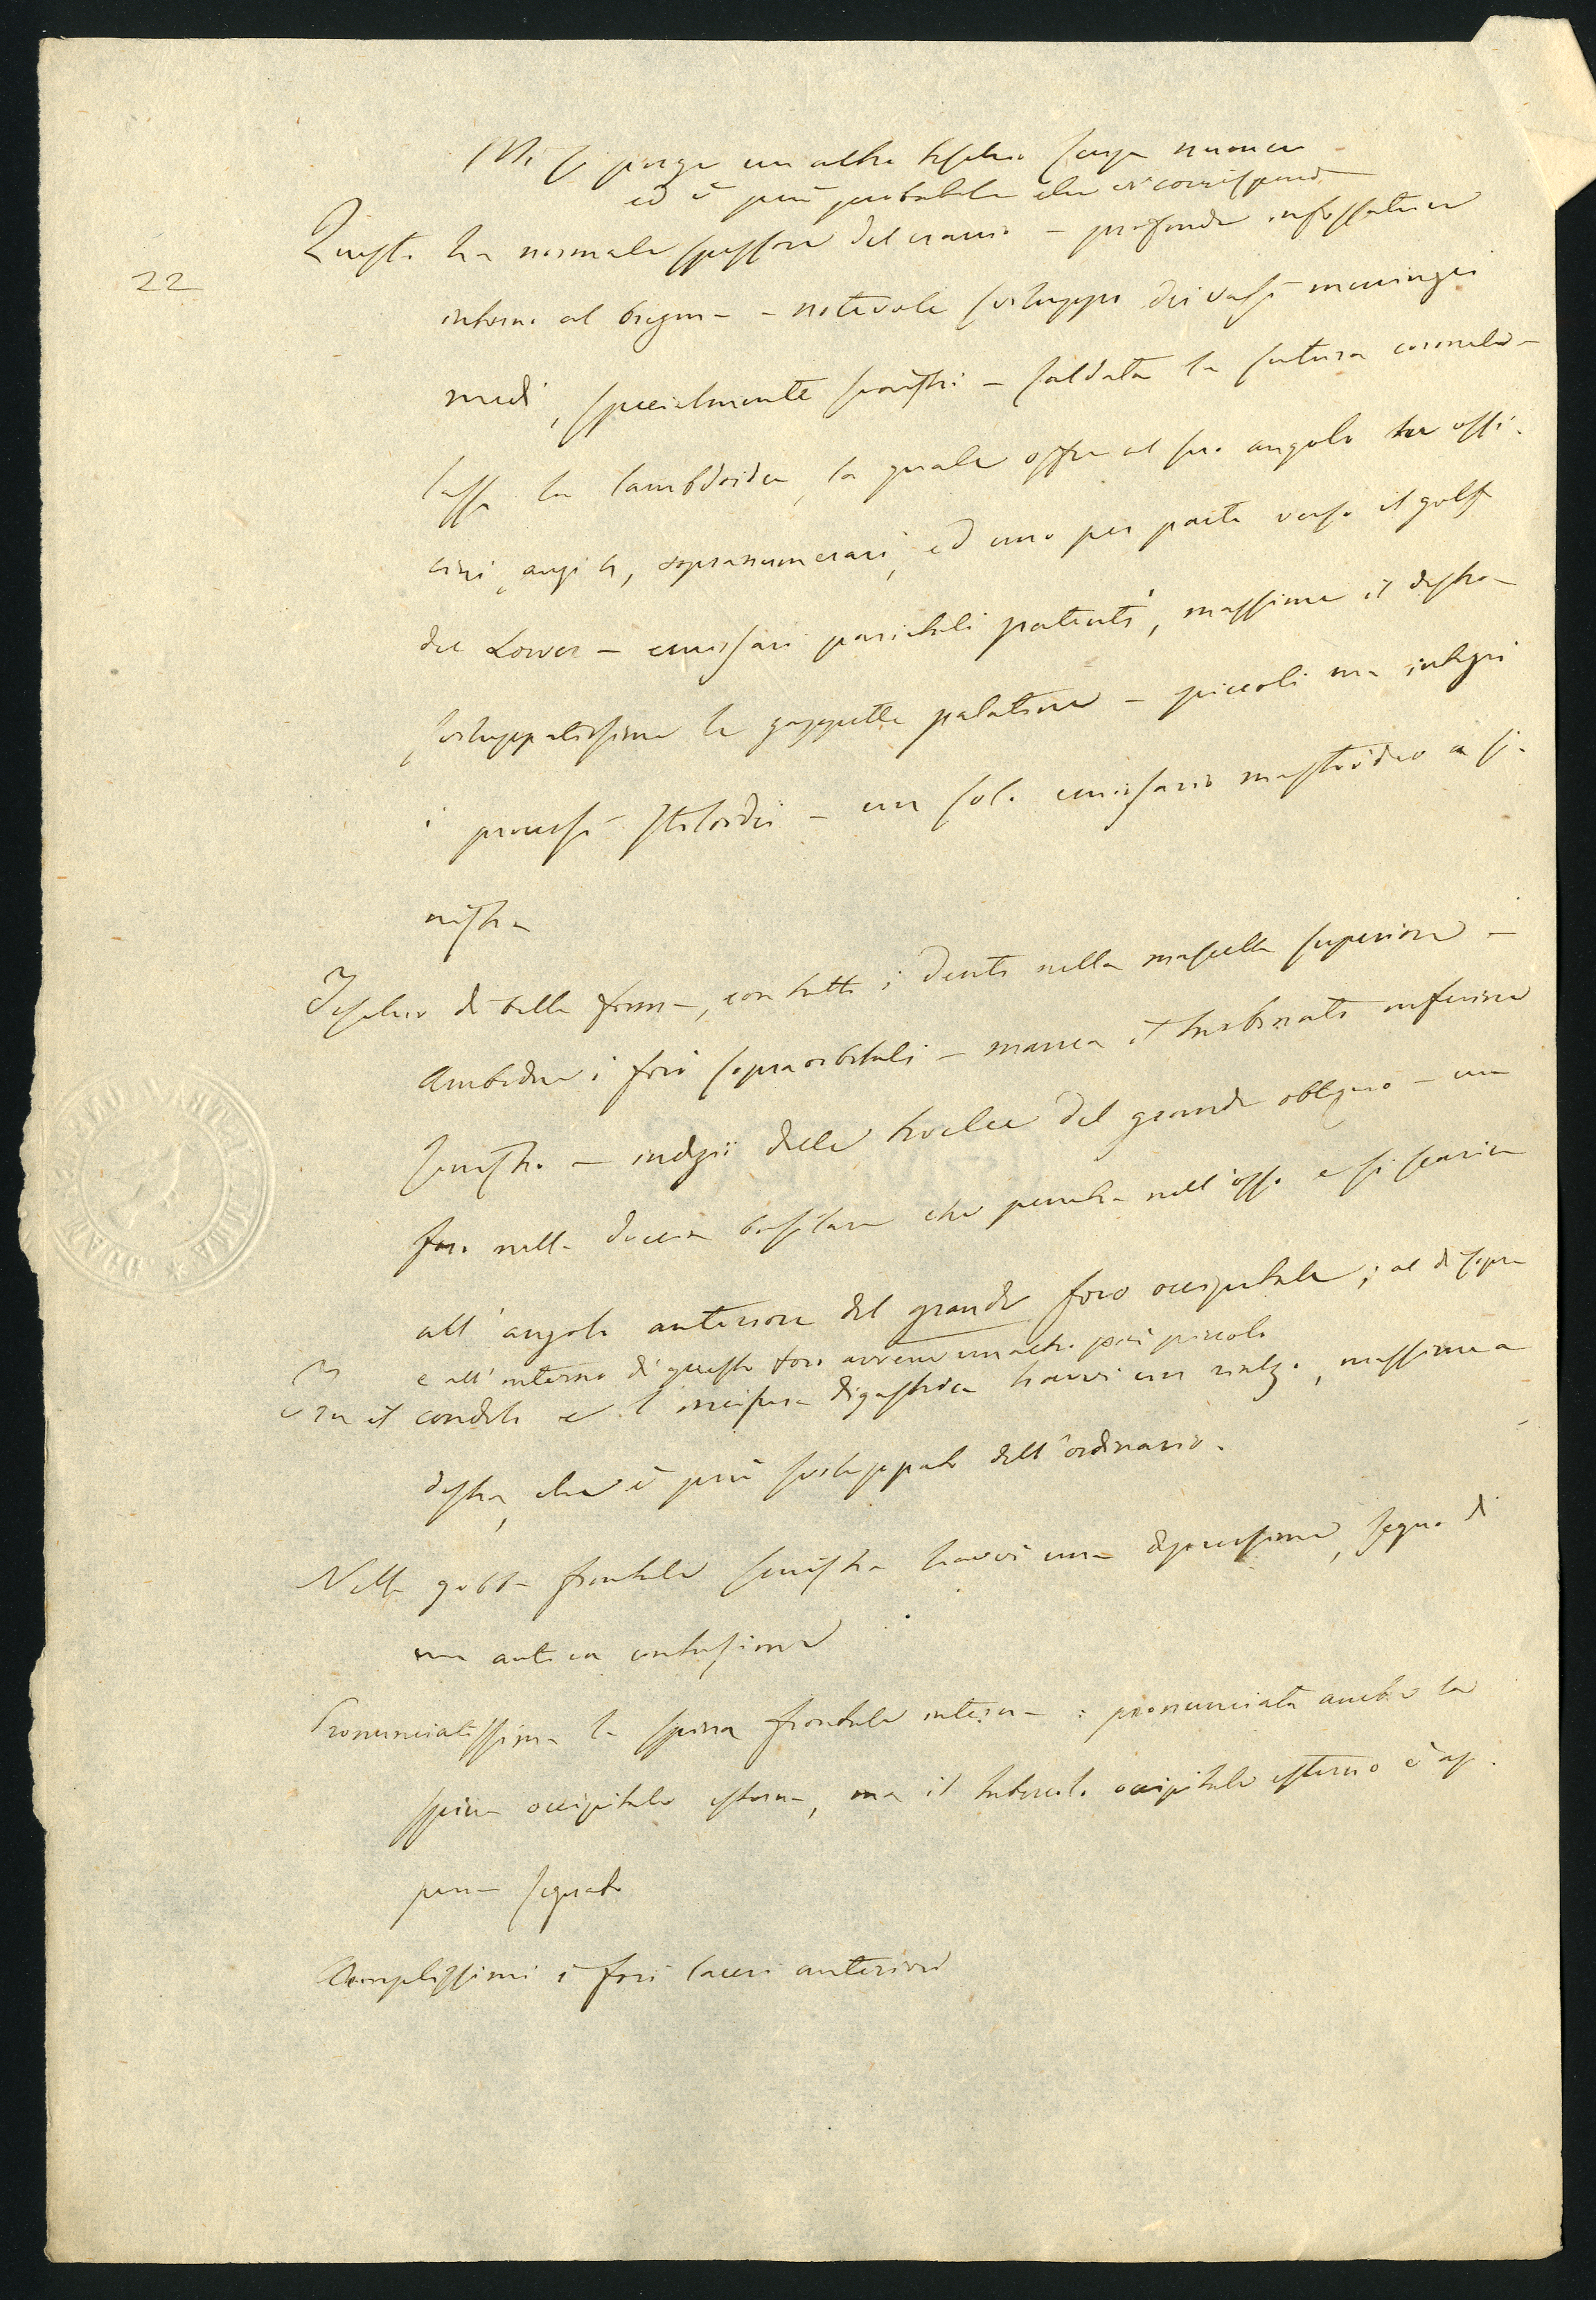 Mi si porge un altro teschio senza numero
ed è più probabile che vi corrisponda
22
Questo ha normale spessore del cranio – profonde infossature
intorno al bregma – notevole sviluppo dei vasi meningei
medi, specialmente sinistri – saldata la sutura coronale –
lassa la lambdoidea, la quale offre al suo angolo tre ossi-
cini, soprannumerari, ed uno per parte verso il golfo
del Lower – emissari parietali patenti, massime il destro –
sviluppatissime le palatine – piccoli ma integri
i processi stiloidei – un solo emissario mastoideo a si-
nistra
Teschio di bella forma, con tutti i denti nella mascella superiore –
Ambedue i fori sopraorbitali – manca il turbinato inferiore
sinistro – indizii della troclea del grande obliquo – un
foro nella doccia basilare che penetra nell'osso e si scarica
all'angolo anteriore del grande foro occipitale; al di sopra
e all'interno di questo foro avvene un altro più piccolo
Tra il condilo e l'incisura digastrica havvi un rialzo, massime a
destra, che è più sviluppato dell'ordinario.
Nella gobba frontale sinistra havvi una depressione, segno di
una antica contusione
Pronunciatissima la spina frontale interna: pronunciata anche la
spina occipitale esterna, ma il tubercolo occipitale esterno è ap-
pena segnato
Amplissimi i fori laceri anteriori